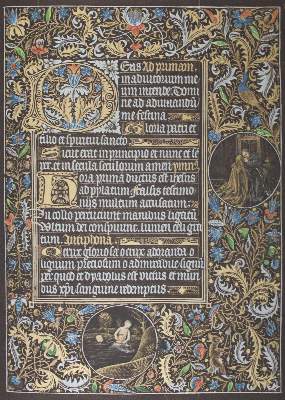 Deus Ad primam
in adiutorium me
um intende Domi
ne ad adiuuandū
me festina
Gloria patri et
filio et spiritui sancto
Sicut erat in principio et nunc et se
per et in secula seculorum amen ymn
Hora prima ductus est iesus
ad pylatum falsis testimo
niis multum accusatum
In collo percuciunt manibus ligatū
Vultum dei conspuunt lumen celi gra
tum Antiphona
O crux gloriosa o crux adoranda o
lignum preciosum et admirabile signū
per quod et dyabolus est victus et mūn
dus xp̄i sanguine redemptus